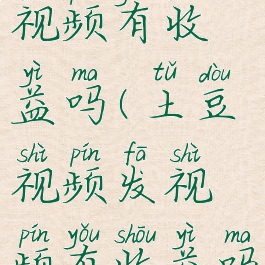 视频有收
yì ma tǔ dòu
益吗(土豆
shì pín fā shì
视频发视
pín yǒu shōu yì ma
频有收益吗